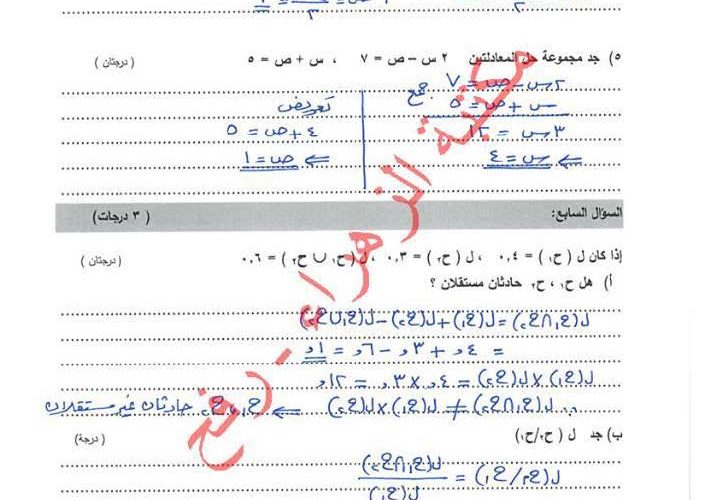 ٢
٣
٥) جد مجموعة حل المعادلتين ٢ س – ص = ٧ ، س + ص = ٥ ( درجتان )
٢س – ص = ٧
س + ص = ٥ جمع تعويض
٣س = ١٢ ٤ + ص = ٥
⇐ س = ٤ ⇐ ص = ١
السؤال السابع: ( ٣ درجات)
إذا كان ل ( ح١ ) = ٠,٤ ، ل ( ح٢ ) = ٠,٣ ، ل ( ح١ ∪ ح٢ ) = ٠,٦ ( درجتان )
أ) هل ح١ ، ح٢ حادثان مستقلان ؟
ل(ح١∩ح٢) = ل(ح١) + ل(ح٢) – ل(ح١∪ح٢)
= ٤,٠ + ٣,٠ – ٦,٠ = ١,٠
ل(ح١) × ل(ح٢) = ٤,٠ × ٣,٠ = ١٢,٠
∴ ل(ح١∩ح٢) ≠ ل(ح١) × ل(ح٢) ⇐ ح١ ، ح٢ حادثان غير مستقلان
ب) جد ل ( ح٢/ح١) ( درجة)
ل(ح٢/ح١) = ل(ح١∩ح٢)
ل(ح١)
مكتبة الزهراء - رفح